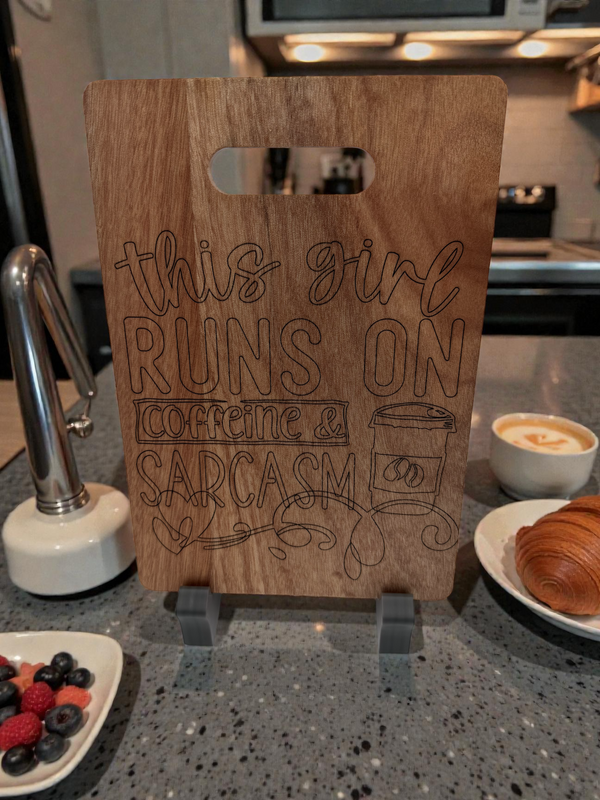 this girl
RUNS ON
coffeine &
SARCASM